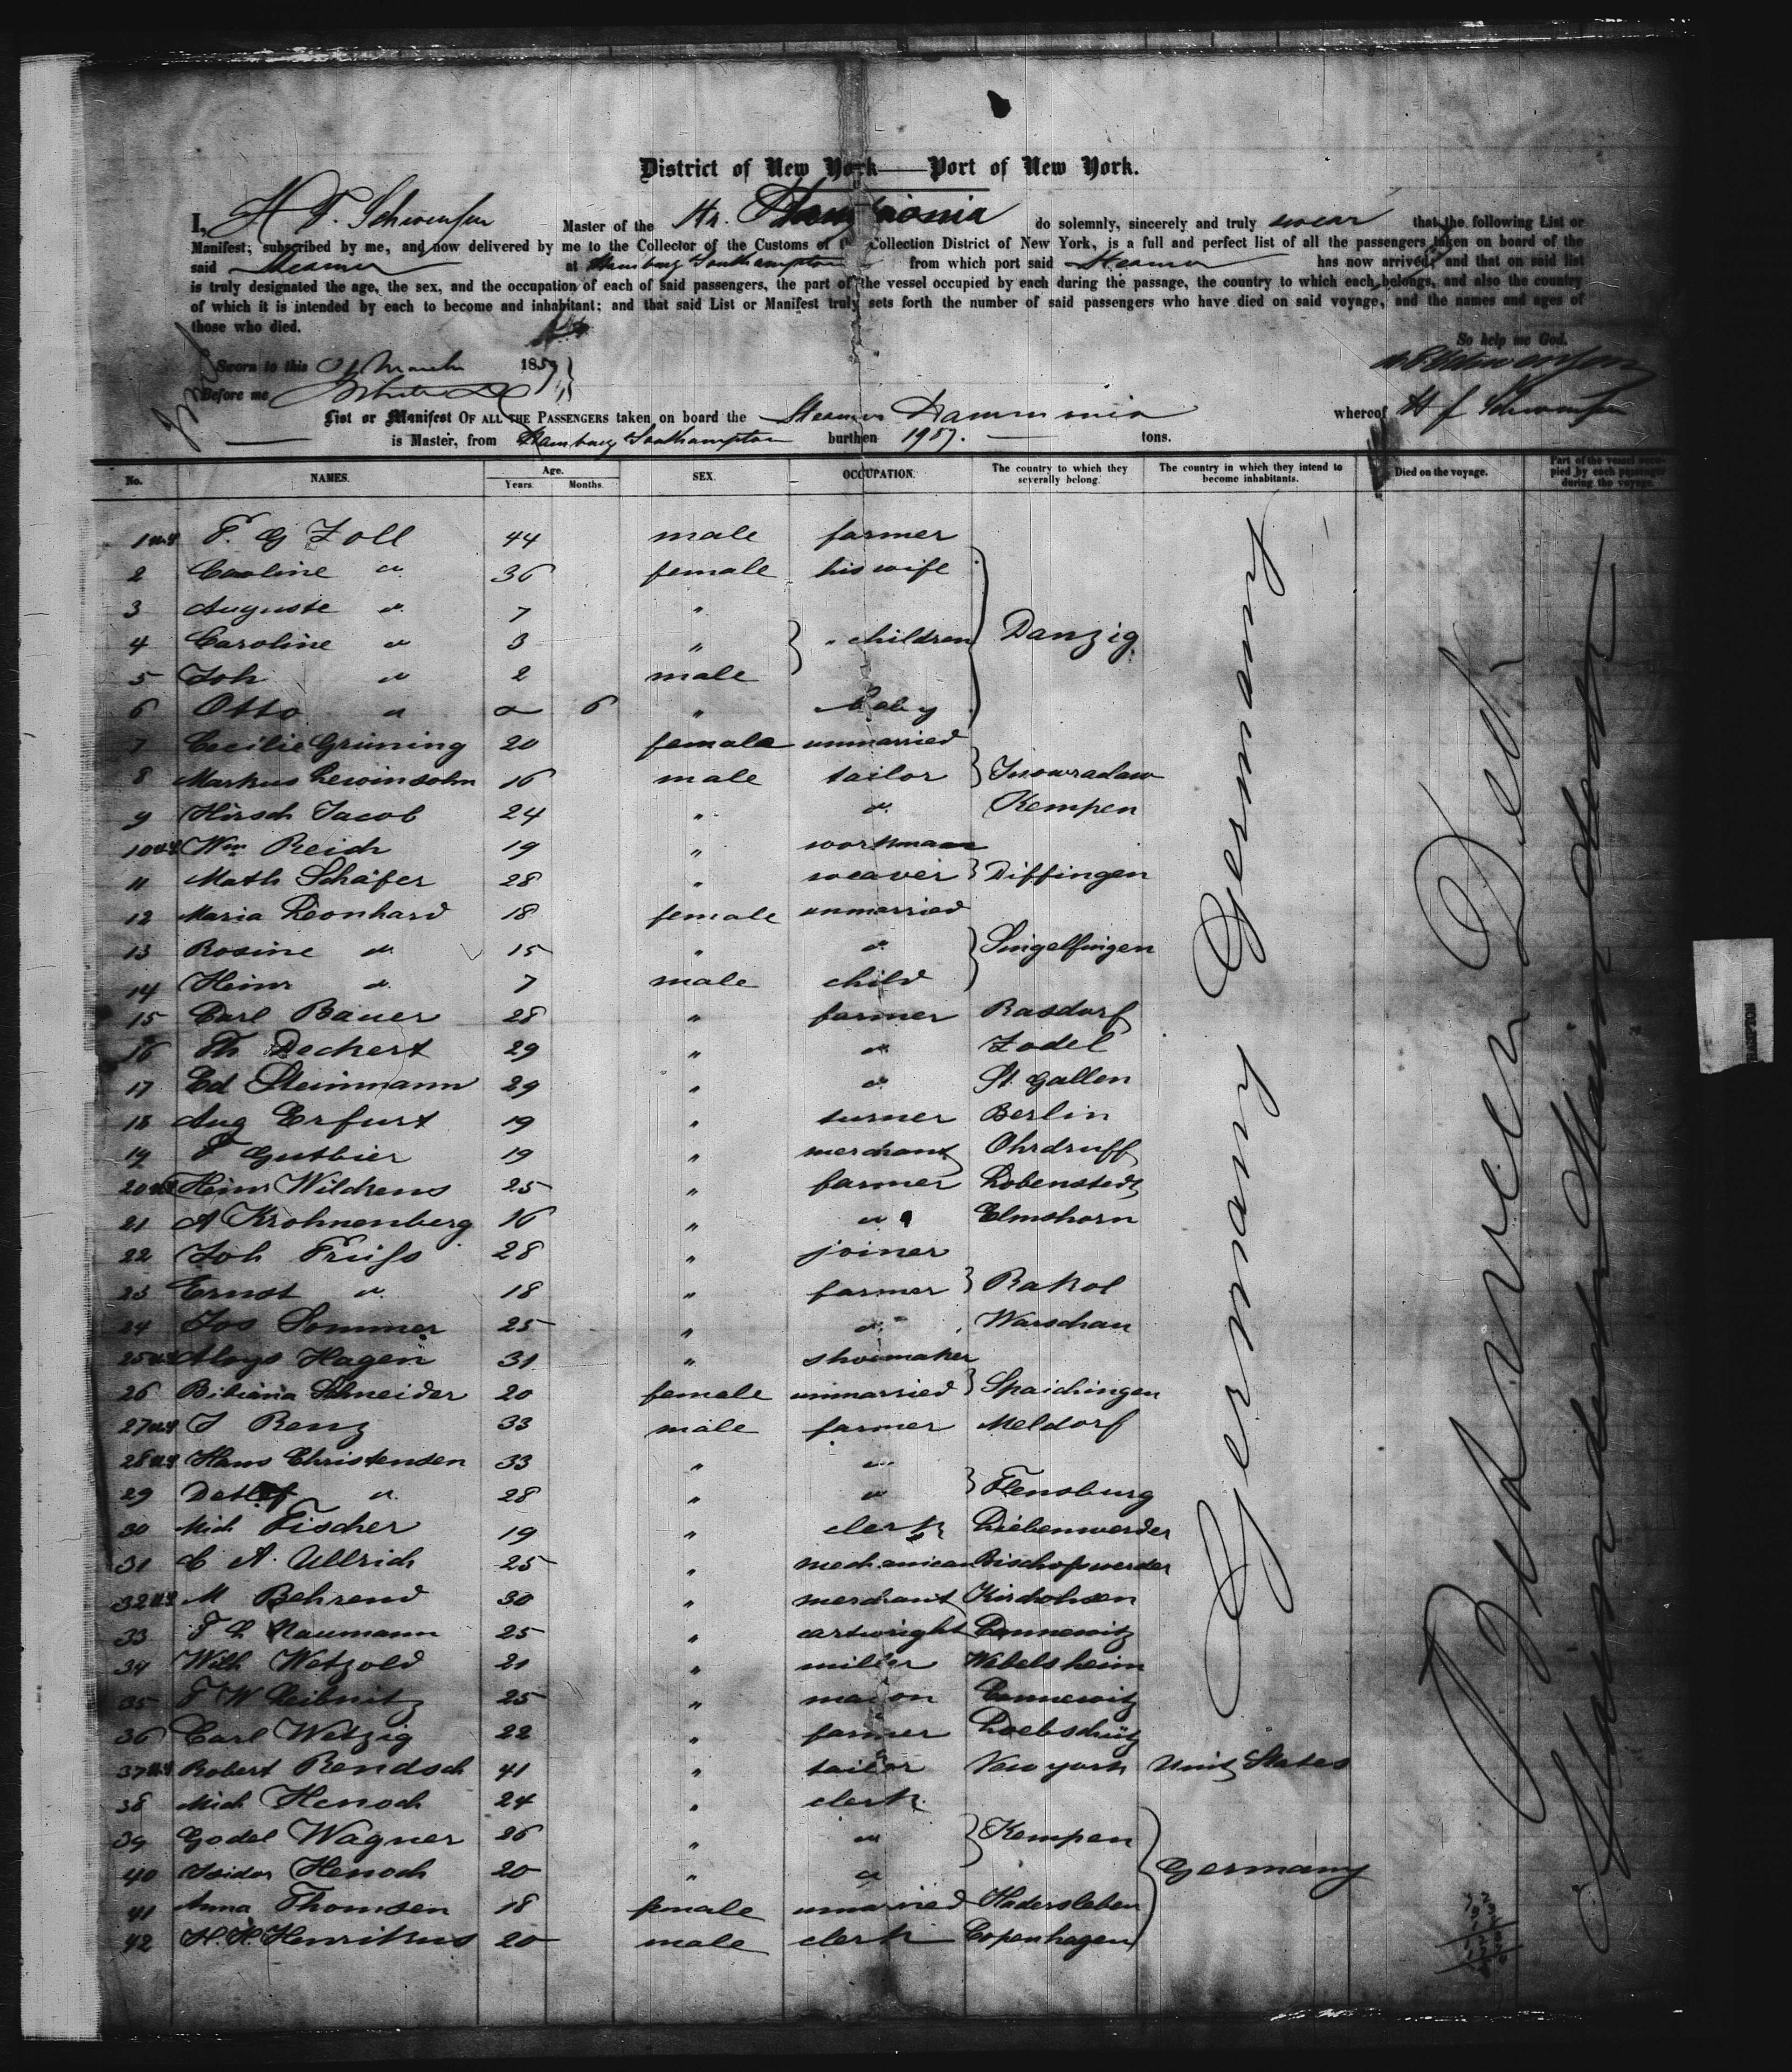 District of New York — Port of New York.
I, H. F. Schwensen Master of the Str. Hammonia do solemnly, sincerely and truly swear that the following List or
Manifest; subscribed by me, and now delivered by me to the Collector of the Customs of the Collection District of New York, is a full and perfect list of all the passengers taken on board of the
said Steamer at Hamburg Southampton from which port said Steamer has now arrived; and that on said list
is truly designated the age, the sex, and the occupation of each of said passengers, the part of the vessel occupied by each during the passage, the country to which each belongs, and also the country
of which it is intended by each to become and inhabitant; and that said List or Manifest truly sets forth the number of said passengers who have died on said voyage, and the names and ages of
those who died.
So help me God.
Sworn to this 21 March 1859
Before me
List or Manifest OF ALL THE PASSENGERS taken on board the Steamer Hammonia whereof H f Schwensen
is Master, from Hamburg Southampton burthen 1987. tons.
No. NAMES. Age. Years. Months. SEX. OCCUPATION. The country to which they severally belong. The country in which they intend to become inhabitants. Died on the voyage. Part of the vessel occupied by each passenger during the voyage.
1 F. G Zoll 44 male farmer
2 Caroline " 36 female his wife
3 Auguste " 7 "
4 Caroline " 3 " " children Danzig
5 Joh " 2 male
6 Otto " " 6 " baby
7 Cecilie Grüning 20 female unmarried
8 Markus Lewinsohn 16 male tailor Inowraclaw
9 Hirsch Jacob 24 " " Kempen
10 Wm Reich 19 " workmann
11 Math Schäfer 28 " weaver Diffingen
12 Maria Leonhard 18 female unmarried
13 Rosine " 15 " " Singelfingen
14 Heinr " 7 male child
15 Carl Bauer 28 " farmer Rasdorf
16 Th Deckert 29 " " Zodel
17 Ed Steinmann 29 " " St. Gallen
18 Aug Erfurt 19 " turner Berlin
19 F Gutbier 19 " merchant Ohrdruff
20 Heinr Wilckens 25 " farmer Lobenstedt
21 A Krohnenberg 16 " " Elmshorn
22 Joh Prüfs 28 " joiner
23 Ernst " 18 " farmer Rakol
24 Jos Sommer 25 " " Warschau
25 Aloys Hagen 31 " shoemaker
26 Bibiana Schneider 20 female unmarried Spaichingen
27 J Renz 33 male farmer Meldorf
28 Hans Christensen 33 " "
29 Detlef " 28 " " Flensburg
30 Mich Fischer 19 " clerk Liebenwerder
31 C A. Ullrich 25 " mechanican Bischofswerder
32 M Behrend 30 " merchant Kirchohsen
33 F L Naumann 25 " cartwright Connewitz
34 Wilh Wetzold 21 " miller Webelsheim
35 F W Leibnitz 25 " mason Connewitz
36 Carl Wetzig 22 " farmer Loebschütz
37 Robert Rendsch 41 " tailor New york Unit States
38 Mich Henoch 24 " clerk
39 Godel Wagner 26 " " Kempen
40 Isidor Henoch 20 " " Germany
41 Anna Thomsen 18 female unmarried Hadersleben
42 H. H. Henrikus 20 male clerk Copenhagen
Germany Germany
Between Deck